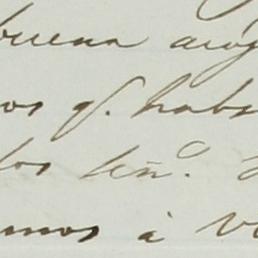 buena acog
os q. habr
los señ.s
mos à V